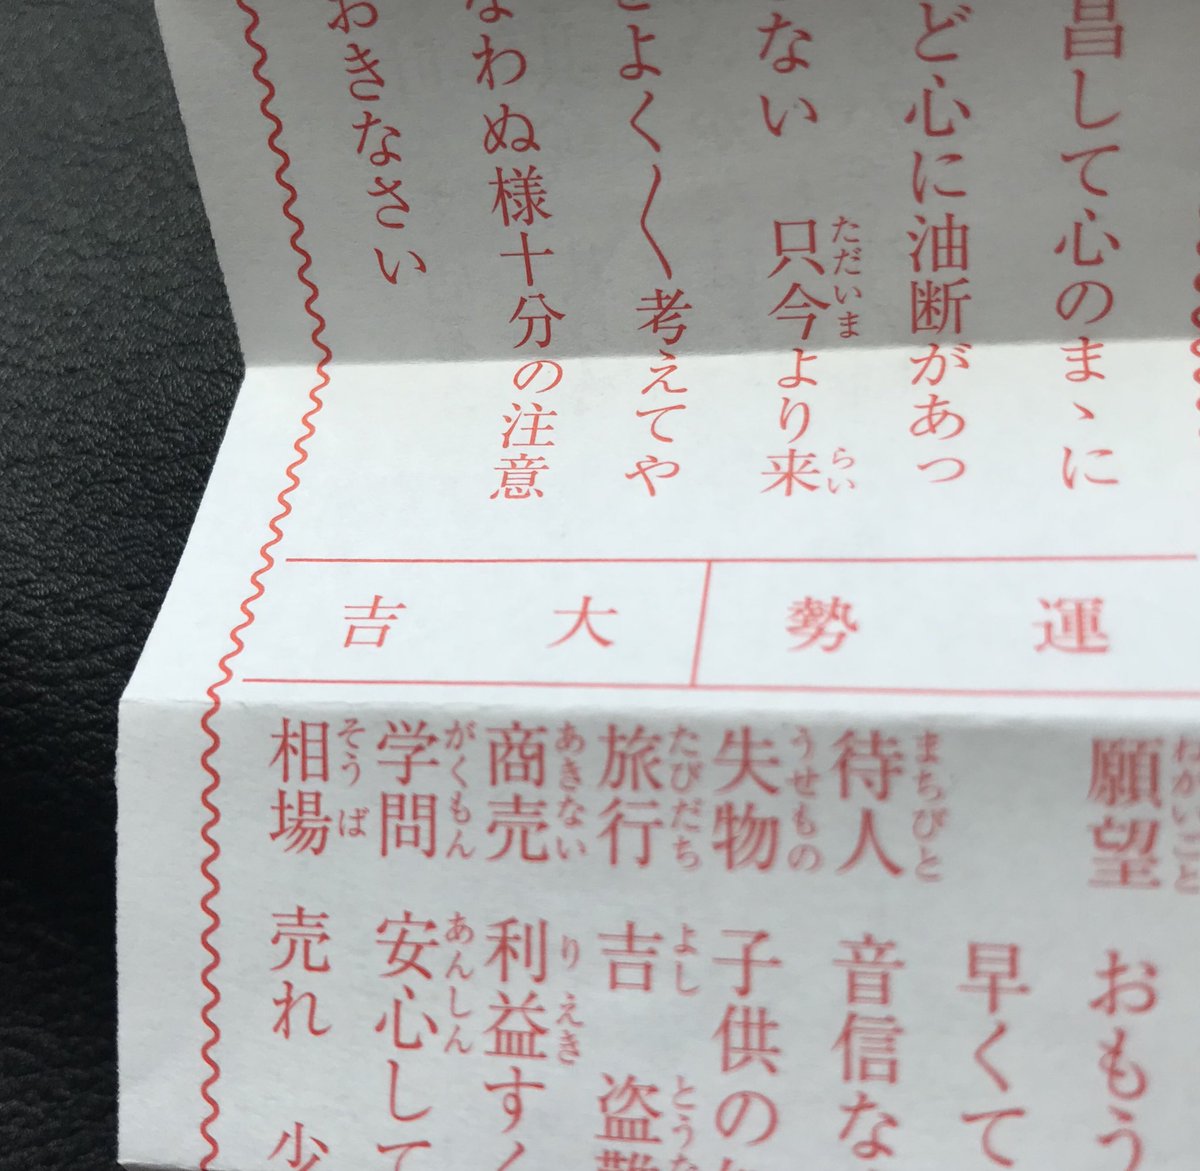 昌して心のまゝに
ど心に油断があっ
ない 只今より来
よく〱考えてや
わぬ様十分の注意
おきなさい
運勢 大吉
願望 おもう
早くて
待人 音信な
失物 子供の
旅行 吉 盗難
商売 利益すく
学問 安心して
相場 売れ 少